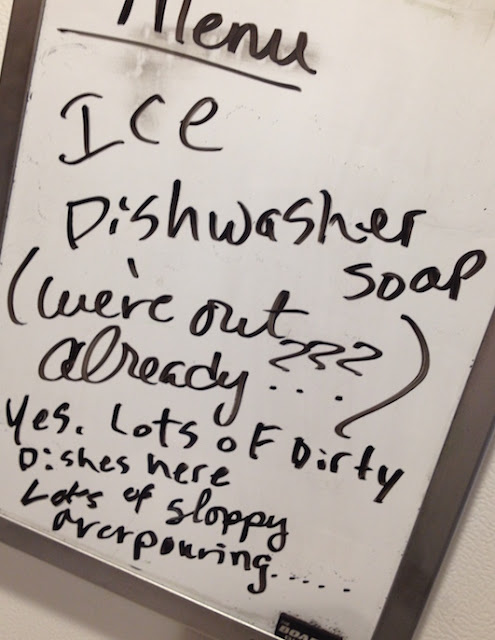 Menu
Ice
Dishwasher
soap
(we're out
already???...)
Yes. Lots of Dirty
Dishes here
Lots of sloppy
overpouring.....
THE
BOA